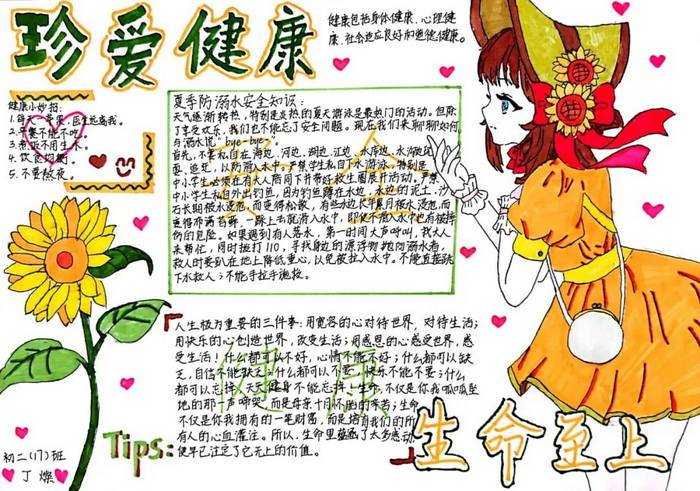 珍爱健康
健康包括身体健康、心理健
康、社会适应良好和道德健康。
健康小妙招:
1.每天一苹果,医生远离我。
2.早餐不能不吃
3.煮饭不用生水
4.饮食均衡
5.不要熬夜。
夏季防溺水安全知识:
天气逐渐转热,特别是炎热的夏天游泳是最热门的活动。但除
了享受欢乐,我们也不能忘了安全问题。现在我们来聊聊如何
与溺水说"bye-bye"
首先,不要私自在海边、河边、湖边、江边、水库边、水沟
边、追赶,以防滑入水中。严禁学生私自下水游泳。特别是
中小学生必须在有大人陪同下并带好救生圈展开活动。严禁
中小学生私自外出钓鱼,因为钓鱼蹲在水边,水边的泥土、沙
石长期被水浸泡,而变得松散,有些水边长年累月被水浸泡,而
重得布满苔藓,一踩上去就滑入水中,即使不滑入水中也有被摔
伤的危险。如果遇到有人落水,第一时间大声呼叫,找大人
来帮忙,同时拨打110,寻找身边的漂浮物抛向溺水者,
救人时要趴在地上降低重心,以免被拉入水中。不能直接跳
下水救人;不能手拉手施救。
人生极为重要的三件事:用宽容的心对待世界,对待生活;
用快乐的心创造世界,改变生活;用感恩的心感受世界,感
受生活!什么都可以不好,心情不能不好;什么都可以缺
乏,自信不能缺乏;什么都可以不要,快乐不能不要;什么
都可以忘掉,天天健身不能忘掉!生命,不仅是你我呱呱坠
地的那一声啼哭,而是母亲十月怀胎的辛苦;生命
不仅是你我拥有的一笔财富,而是诸多我们的所
有人的心血灌注。所以,生命里蕴涵了太多感动
便早已注定了它无上的价值。
健康
Tips:
生命至上
初二(17)班
丁燦